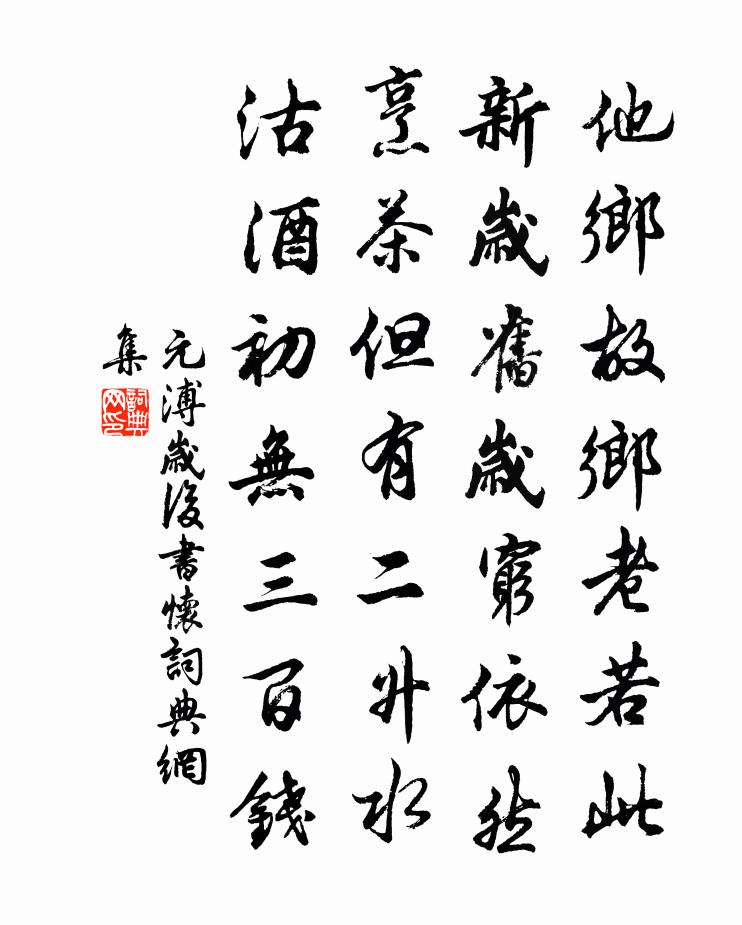 他鄉故鄉老若此
新歲舊歲窮依然
烹茶但有二升水
沽酒初無三百錢
元溥歲後書懷詞典網
集
詞典
网印